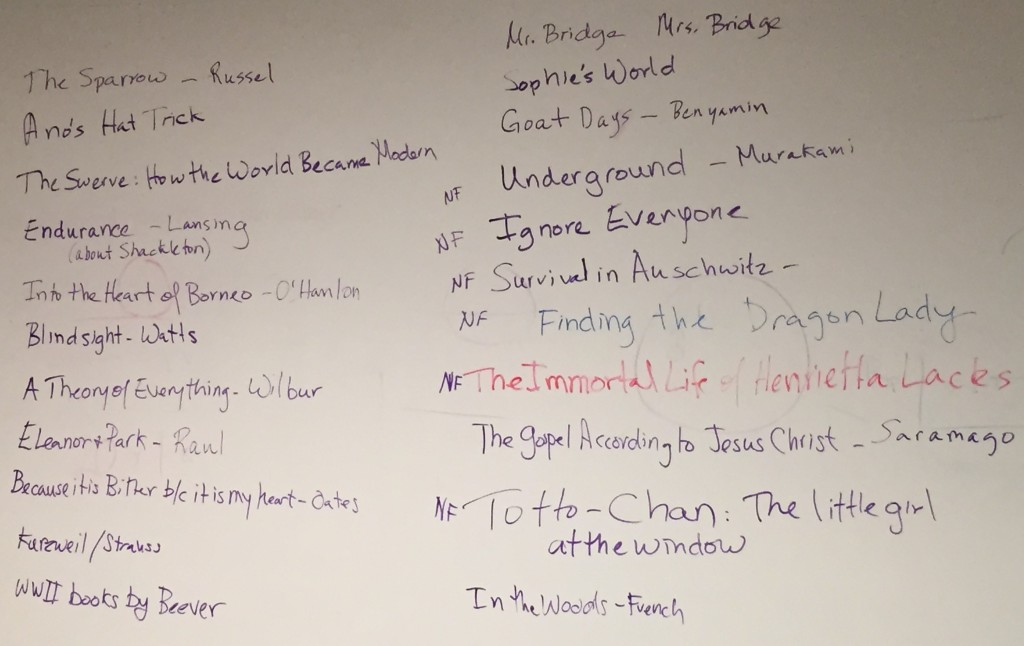 The Sparrow - Russel
Ano's Hat Trick
The Swerve: How the World Became Modern
Endurance - Lansing
(about Shackleton)
Into the Heart of Borneo - O'Hanlon
Blindsight - Watts
A Theory of Everything - Wilbur
Eleanor + Park - Raul
Because it is Bitter b/c it is my heart - Oates
Kurzweil / Strauss
WWII books by Beever
Mr. Bridge Mrs. Bridge
Sophie's World
Goat Days - Benyamin
NF Underground - Murakami
NF Ignore Everyone
NF Survival in Auschwitz -
NF Finding the Dragon Lady
NF The Immortal Life of Henrietta Lacks
The Gospel According to Jesus Christ - Saramago
NF Totto-Chan: The little girl
at the window
In the Woods - French